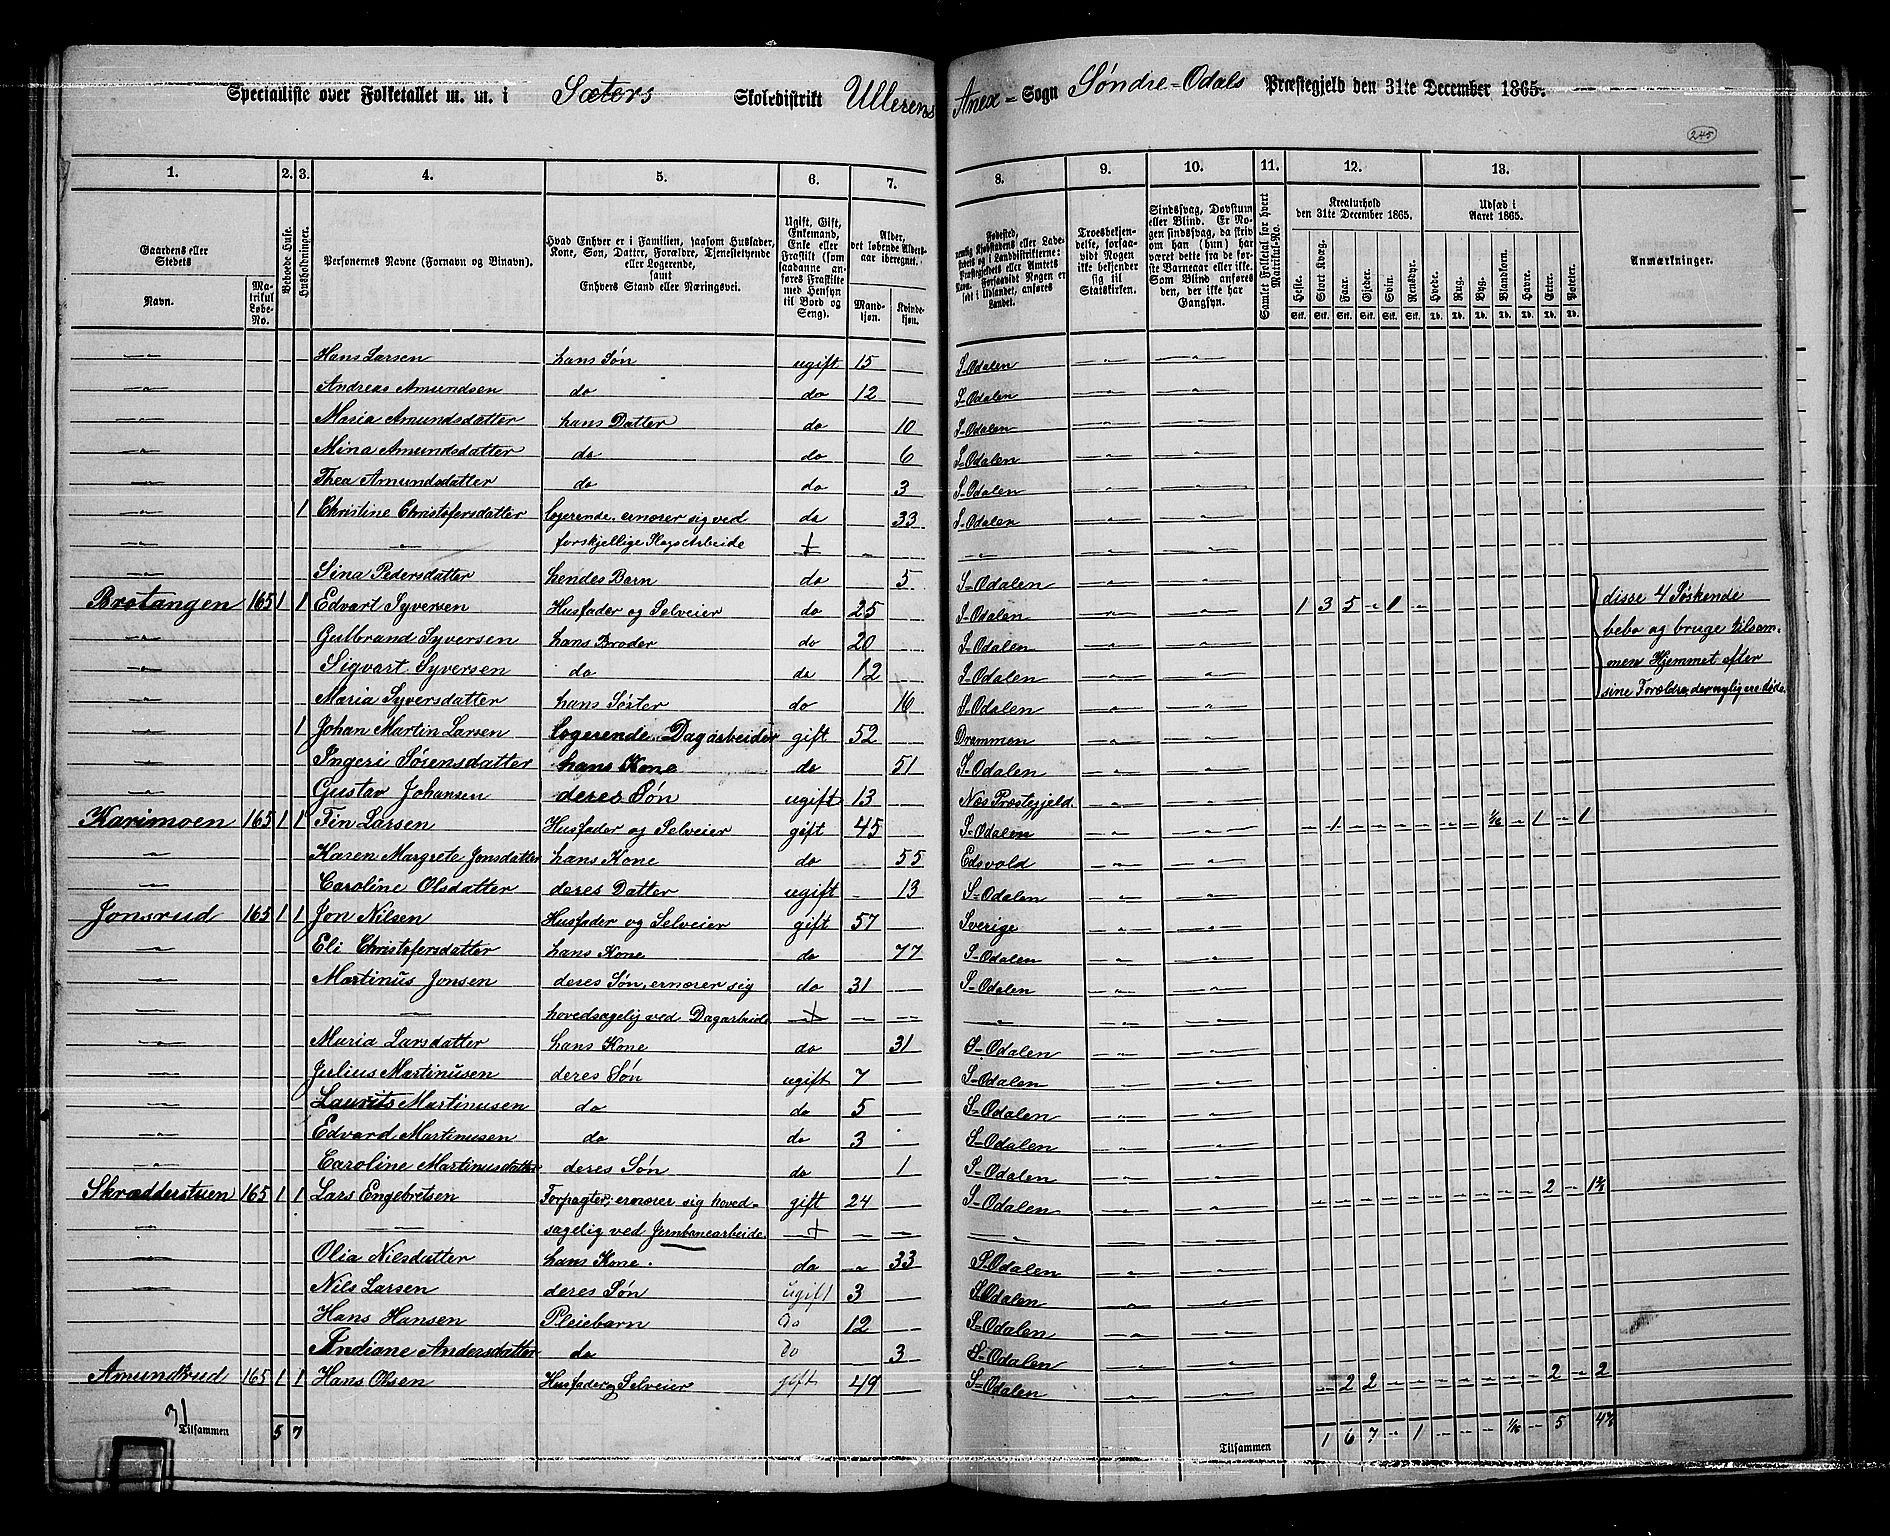 Specialliste over Folketallet m. m. i Sæters Skoledistrikt Ullerens Anex-Sogn Søndre-Odals Præstegjeld den 31te December 1865.
245
1. 2. 3. 4. 5. 6. 7. 8. 9. 10. 11. 12. 13.
Gaardens eller Stedets
Navn.
Matrikul Løbe-No.
Beboede Huse.
Husholdninger.
Personernes Navne (Fornavn og Binavn).
Hvad Enhver er i Familien, saasom Husfader, Kone, Søn, Datter, Forældre, Tjenestetyende eller Logerende, samt Enhvers Stand eller Næringsvei.
Ugift, Gift, Enkemand, Enke eller Fraskilt (som saadanne anføres Fraskilte med Hensyn til Bord og Seng).
Alder, det løbende Aldersaar iberegnet.
Mandkjøn.
Kvindekjøn.
Fødested,
Troesbekjendelse, forsaavidt Nogen ikke bekjender sig til Statskirken.
Sindssvag, Døvstum eller Blind. Er Nogen sindssvag, da skriv om han (hun) har været dette fra de første Barneaar eller ikke. Som Blind anføres den, der ikke har Gangsyn.
Samlet Folketal for hvert Matrikul-No.
Kreaturhold den 31te December 1865.
Heste. Stort Kvæg. Faar. Gjeder. Svin. Rensdyr.
Stk. Stk. Stk. Stk. Stk. Stk.
Udsæd i Aaret 1865.
Hvede. Rug. Byg. Blandkorn. Havre. Erter. Poteter.
Td. Td. Td. Td. Td. Td. Td.
Anmærkninger.
Hans Larsen hans Søn ugift 15 S-Odalen
Andreas Amundsen do do 12 S-Odalen
Maria Amundsdatter hans Datter do 10 S-Odalen
Mina Amundsdatter do do 6 S-Odalen
Thea Amundsdatter do do 3 S-Odalen
1 Christine Christofersdatter logerende, ernærer sig ved do 33 S-Odalen
forskjellige Slags Arbeide
Sina Pedersdatter hendes Barn do 5 S-Odalen
Brotangen 165 1 1 Edvart Syversen Husfader og Selveier do 25 S-Odalen 1 3 5 - 1 - disse 4 Søskende
Gulbrand Syversen hans Broder do 20 S-Odalen bebo og bruge tilsam-
Sigvart Syversen do do 12 S-Odalen men Hjemmet efter
Maria Syversdatter hans Søster do 16 S-Odalen sine Forældre, der nylig ere døde.
1 Johan Martin Larsen logerende, Dagarbeider gift 52 Drammen
Ingeri Sørensdatter hans Kone do 51 S-Odalen
Gustav Johansen deres Søn ugift 13 Næs Præstegjeld
Karimoen 165 1 1 Fin Larsen Husfader og Selveier gift 45 S-Odalen - 1 - - - - - - - 1/16 - 1 - 1
Karen Margrete Jonsdatter hans Kone do 55 Edsvold
Caroline Olsdatter deres Datter ugift - 13 S-Odalen
Jonsrud 165 1 1 Jon Nilsen Husfader og Selveier gift 57 Sverige
Eli Christofersdatter hans Kone do 77 S-Odalen
Martinus Jonsen deres Søn, ernærer sig do 31 S-Odalen
hovedsagelig ved Dagarbeide
Maria Larsdatter hans Kone do 31 S-Odalen
Julius Martinusen deres Søn ugift 7 S-Odalen
Laurits Martinusen do do 5 S-Odalen
Edvard Martinusen do do 3 S-Odalen
Caroline Martinusdatter deres Søn do 1 S-Odalen
Skrædderstuen 165 1 1 Lars Engebretsen Forpagter, ernærer sig hoved- gift 24 S-Odalen 2 -
sagelig ved Jernbanearbeide
Olia Nilsdatter hans Kone do - 33 S-Odalen
Nils Larsen deres Søn ugift 3 S-Odalen
Hans Hansen Pleiebarn do 12 S-Odalen
Andiane Andersdatter do do 3 S-Odalen
Amundsrud 165 1 1 Hans Olsen Husfader og Selveier gift 49 S-Odalen - 2 2 - - - - - - - 2 - 2
31
Tilsammen 5 7
Tilsammen 1 6 7 - 1 - - - 1/16 - 5